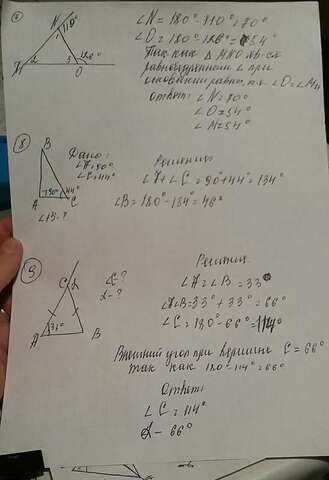 N
110°
M 2 3 126°
O
∠N = 180° - 110° = 70°
∠O = 180° - 126° = 54°
Так как △ MNO
равнобедренный ∠ при
основании равны, т.к. ∠O = ∠M
ответ: ∠N = 70°
∠O = 54°
∠M = 54°
8
B
90° 44°
A C
∠B - ?
Дано:
∠A = 90°
∠C = 44°
Решение
∠A + ∠C = 90° + 44° = 134°
∠B = 180° - 134° = 46°
9
C α
A 33° B
∠C - ?
α - ?
Решение
∠A = ∠B = 33°
∠A+∠B = 33° + 33° = 66°
∠C = 180° - 66° = 114°
Внешний угол при вершине C = 66°
так как 180° - 114° = 66°
Ответ:
∠C = 114°
α - 66°